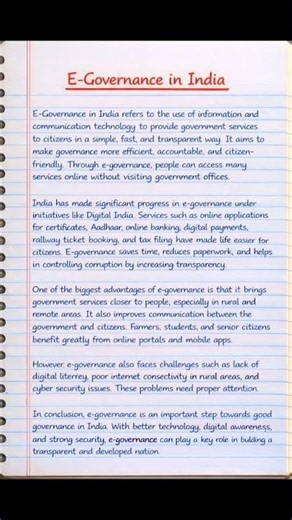 E-Governance in India
E-Governance in India refers to the use of information and
communication technology to provide government services
to citizens in a simple, fast, and transparent way. It aims to
make governance more efficient, accountable, and citizen-
friendly. Through e-governance, people can access many
services online without visiting government offices.
India has made significant progress in e-governance under
initiatives like Digital India. Services such as online applications
for certificates, Aadhaar, online banking, digital payments,
railway ticket booking, and tax filing have made life easier for
citizens. E-governance saves time, reduces paperwork, and helps
in controlling corruption by increasing transparency.
One of the biggest advantages of e-governance is that it brings
government services closer to people, especially in rural and
remote areas. It also improves communication between the
government and citizens. Farmers, students, and senior citizens
benefit greatly from online portals and mobile apps.
However, e-governance also faces challenges such as lack of
digital literrey, poor internet consectivity in rural areas, and
cyber security issues. These problems need proper attention.
In conclusion, e-governance is an important step towards good
governance in India. With better technology, digital awareness,
and strong security, e-governance can play a key role in bulding a
transparent and developed nation.